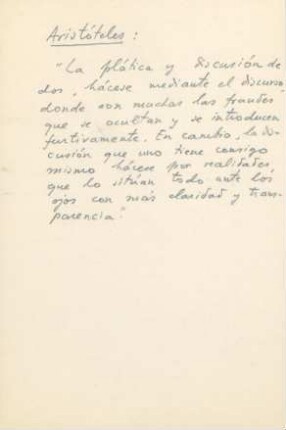 Aristóteles:
"La plática y discusión de
dos, hácese mediante el discurso,
donde son muchas las fraudes
que se ocultan y se introducen
furtivamente. En cambio, la dis-
cusión que uno tiene consigo
mismo hácese por realidades
que lo sitúan todo ante los
ojos con más claridad y trans-
parencia".